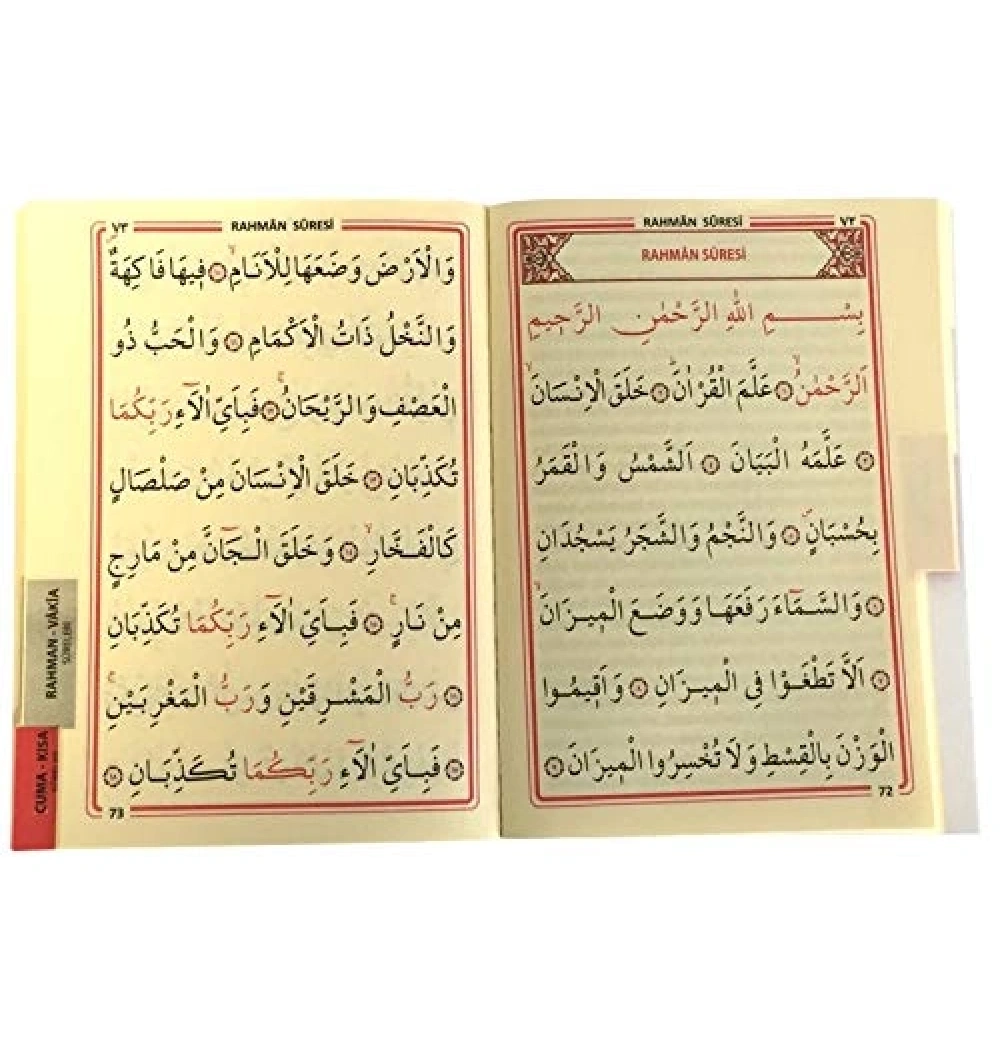 RAHMÂN SÛRESİ ٧٢
RAHMÂN SÛRESİ
بِسْـــــمِ اللّٰهِ الرَّحْمٰنِ الرَّحٖيمِ
اَلرَّحْمٰنُۙ ۝١ عَلَّمَ الْقُرْاٰنَۜ ۝٢ خَلَقَ الْاِنْسَانَۙ
۝٣ عَلَّمَهُ الْبَيَانَ ۝٤ اَلشَّمْسُ وَالْقَمَرُ
بِحُسْبَانٍۖ ۝٥ وَالنَّجْمُ وَالشَّجَرُ يَسْجُدَانِ
۝٦ وَالسَّمَٓاءَ رَفَعَهَا وَوَضَعَ الْمٖيزَانَۙ
۝٧ اَلَّا تَطْغَوْا فِى الْمٖيزَانِ ۝٨ وَاَقٖيمُوا
الْوَزْنَ بِالْقِسْطِ وَلَا تُخْسِرُوا الْمٖيزَانَ ۝٩
72
٧٣ RAHMÂN SÛRESİ
وَالْاَرْضَ وَضَعَهَا لِلْاَنَامِۙ ۝١٠ فٖيهَا فَاكِهَةٌ
وَالنَّخْلُ ذَاتُ الْاَكْمَامِ ۝١١ وَالْحَبُّ ذُو
الْعَصْفِ وَالرَّيْحَانُۚ ۝١٢ فَبِاَىِّ اٰلَٓاءِ رَبِّكُمَا
تُكَذِّبَانِ ۝١٣ خَلَقَ الْاِنْسَانَ مِنْ صَلْصَالٍ
كَالْفَخَّارِۙ ۝١٤ وَخَلَقَ الْجَٓانَّ مِنْ مَارِجٍ
مِنْ نَارٍۚ ۝١٥ فَبِاَىِّ اٰلَٓاءِ رَبِّكُمَا تُكَذِّبَانِ
۝١٦ رَبُّ الْمَشْرِقَيْنِ وَرَبُّ الْمَغْرِبَيْنِۚ
۝١٧ فَبِاَىِّ اٰلَٓاءِ رَبِّكُمَا تُكَذِّبَانِ ۝١٨
73
RAHMAN - VÂKIA
SÛRELERİ
CUMA - KISA